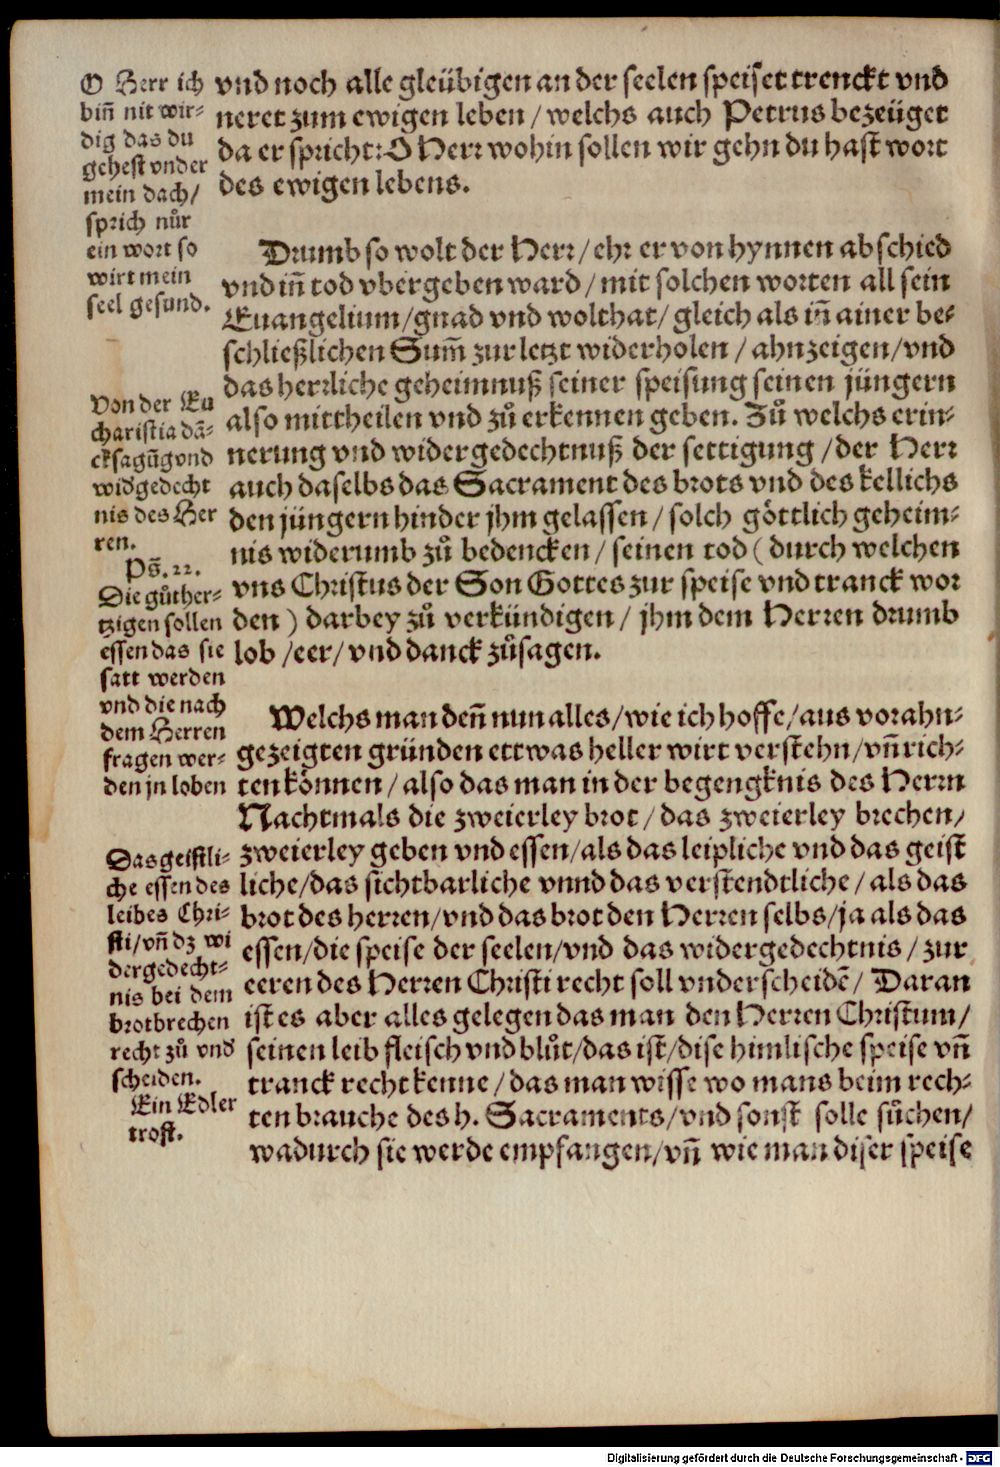 O Herr ich
bin̄ nit wir-
dig das du
gehest vnder
mein dach/
sprich nůr
ein wort so
wirt mein
seel gesund.
vnd noch alle gleübigen an der seelen speiset trenckt vnd
neret zum ewigen leben / welchs auch Petrus bezeüget
da er spricht: O Herr wohin sollen wir gehn du hast wort
des ewigen lebens.
Drumb so wolt der Herr / ehr er von hynnen abschied
vnd in̄ tod vbergeben ward / mit solchen worten all sein
Euangelium/gnad vnd wolthat/ gleich als in̄ ainer be-
schließlichen Sum̄ zur letzt widerholen / ahnzeigen/vnd
das herrliche geheimnuß seiner speisung seinen jüngern
also mittheilen vnd zů erkennen geben. Zů welchs erin-
nerung vnd widergedechtnuß der settigung /der Herr
auch daselbs das Sacrament des brots vnd des kellichs
den jüngern hinder jhm gelassen / solch göttlich geheim-
nis widerumb zů bedencken / seinen tod ( durch welchen
vns Christus der Son Gottes zur speise vnd tranck wor
den ) darbey zů verkündigen / jhm dem Herren drumb
lob /eer/ vnd danck zůsagen.
Von der Eu
charistia dā-
cksagūg vnd
widgedecht
nis des Her
ren.
Ps̄. 22.
Die gůther-
tzigen sollen
essen das sie
satt werden
vnd die nach
dem Herren
fragen wer-
den jn loben
Welchs man den̄ nun alles/wie ich hoffe/aus vorahn-
gezeigten gründen ettwas heller wirt verstehn/vn̄ rich-
ten können / also das man in der begengknis des Herrn
Nachtmals die zweierley brot / das zweierley brechen/
zweierley geben vnd essen/als das leipliche vnd das geist
liche/das sichtbarliche vnnd das verstendtliche / als das
brot des herren/vnd das brot den Herren selbs/ja als das
essen/die speise der seelen/vnd das widergedechtnis / zur
eeren des Herren Christi recht soll vnderscheidē/ Daran
ist es aber alles gelegen das man den Herren Christum/
seinen leib fleisch vnd blůt/das ist/dise himlische speise vn̄
tranck recht kenne / das man wisse wo mans beim rech-
ten brauche des h. Sacraments/vnd sonst solle sůchen/
wadurch sie werde empfangen/vn̄ wie man diser speise
Das geistli-
che essen des
leibes Chri-
sti/vn̄ dz wi
dergedecht-
nis bei dem
brotbrechen
recht zů vnd
scheiden.
Ein Edler
trost.
Digitalisierung gefördert durch die Deutsche Forschungsgemeinschaft - DFG